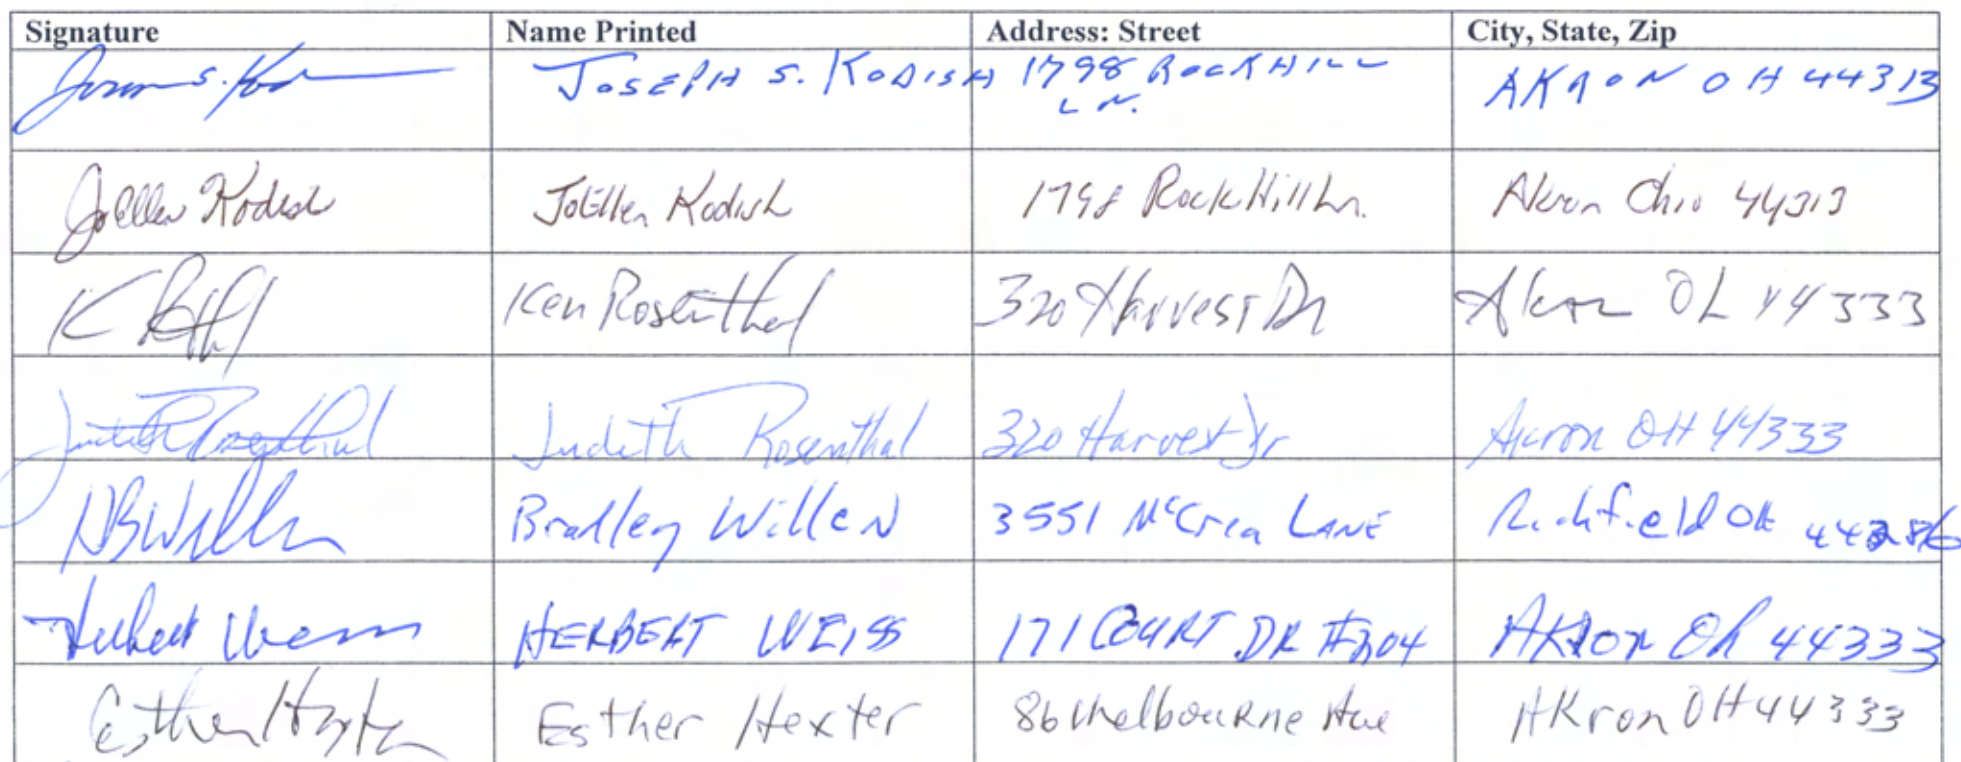 Signature Name Printed Address: Street City, State, Zip
Joseph S. Kodish JOSEPH S. KODISH 1798 ROCKHILL AKRON OH 44313
LN.
JoEllen Kodish JoEllen Kodish 1798 RockHill Ln. Akron Ohio 44313
K Ken Rosenthal 320 Harvest Dr Akron OH 44333
Judith Rosenthal Judith Rosenthal 320 Harvest Dr Akron OH 44333
Bradley Willen 3551 McCrea LANE Richfield OH 44286
Herbert Weiss HERBERT WEISS 171 COURT DR #204 AKRON Oh 44333
Esther Hexter Esther Hexter 86 Melbourne Ave AKron OH 44333